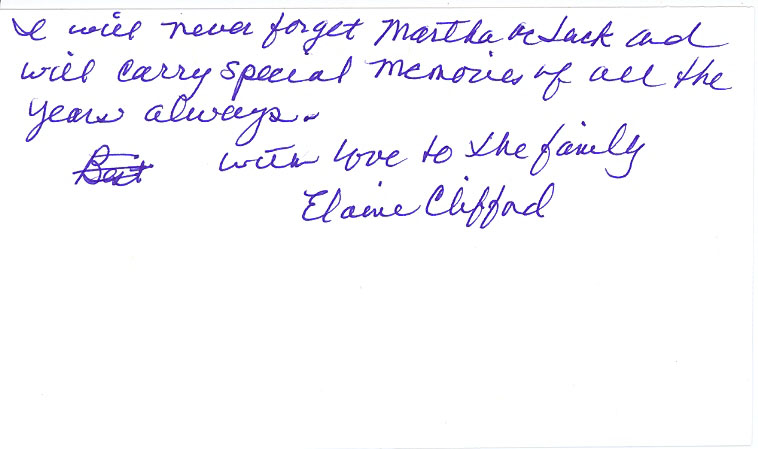 I will never forget Martha & Jack and
will carry special memories of all the
years always.
Best with love to the family
Elaine Clifford